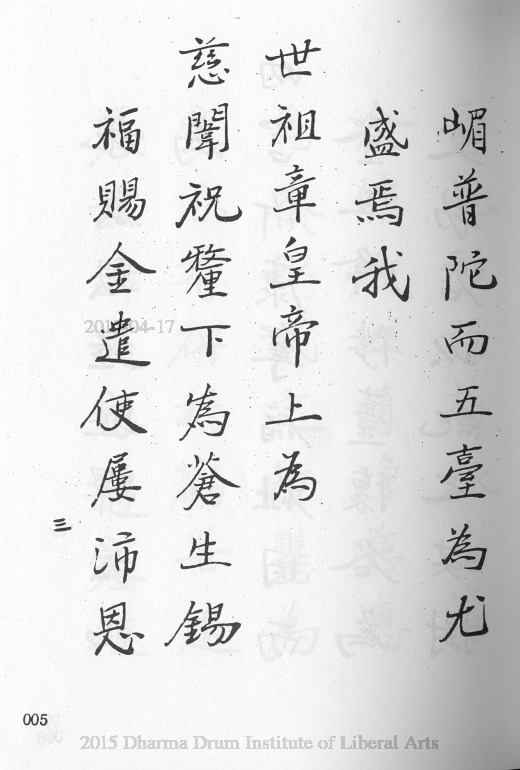 嵋普陀而五臺為尤
盛焉我
世祖章皇帝上為
慈闈祝釐下為蒼生錫
福賜金遣使屢沛恩
三
005
2015-04-17
2015 Dharma Drum Institute of Liberal Arts